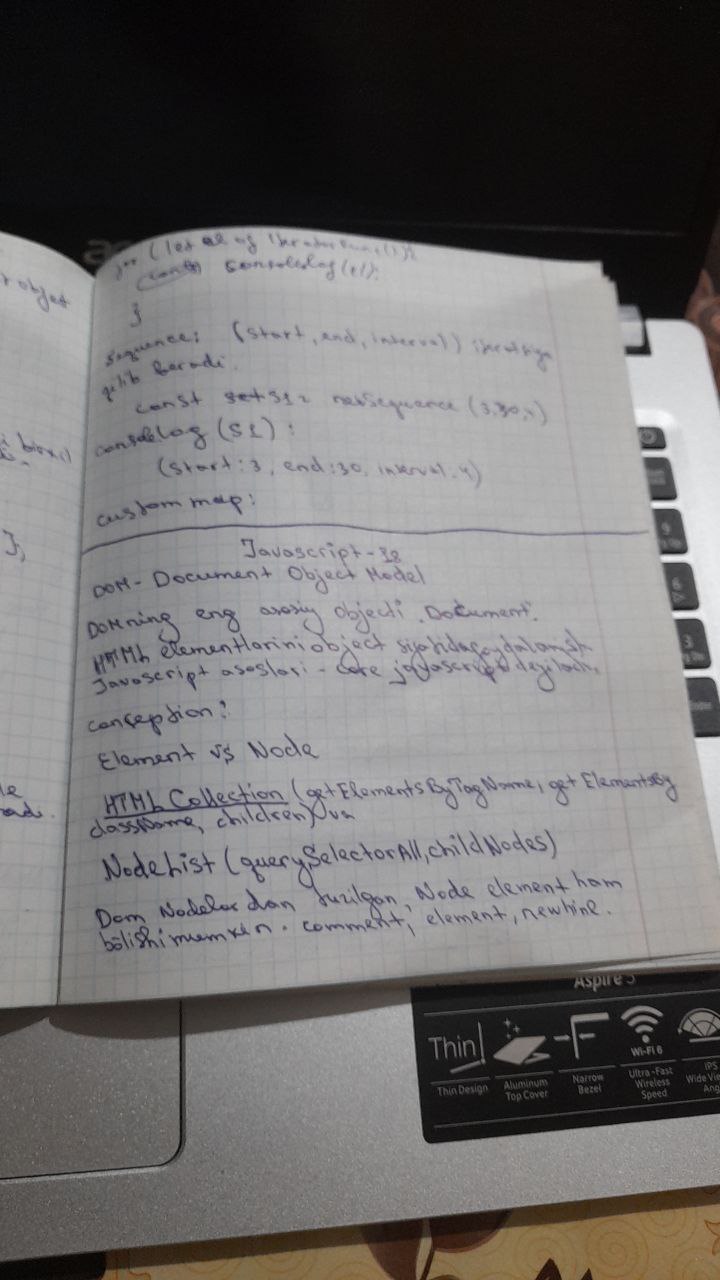 r objet
},
for (let el of
console.log(el);
}
sequence: (start, end, interval)
qilib beradi.
const set s1 = newSequence (3,30,4)
consolelog (s1) :
(start:3, end:30, interval:4)
custom map:
Javascript-38
DOM-Document Object Model
DOMning eng asosiy objecti Document.
HTML elementlarini object sifatida foydalanish
Javascript asoslari - core javascript deyiladi.
conseption:
Element vs Node
HTML Collection (getElementsByTagName, getElementsBy
className, children) va
NodeList (querySelectorAll, childNodes)
Dom Nodelardan tuzilgan, Node element ham
bõlishi mumkin. comment, element, newline.
Aspire 5
Thin
Thin Design
Aluminum
Top Cover
Narrow
Bezel
Wi-Fi 6
Ultra-Fast
Wireless
Speed
IPS